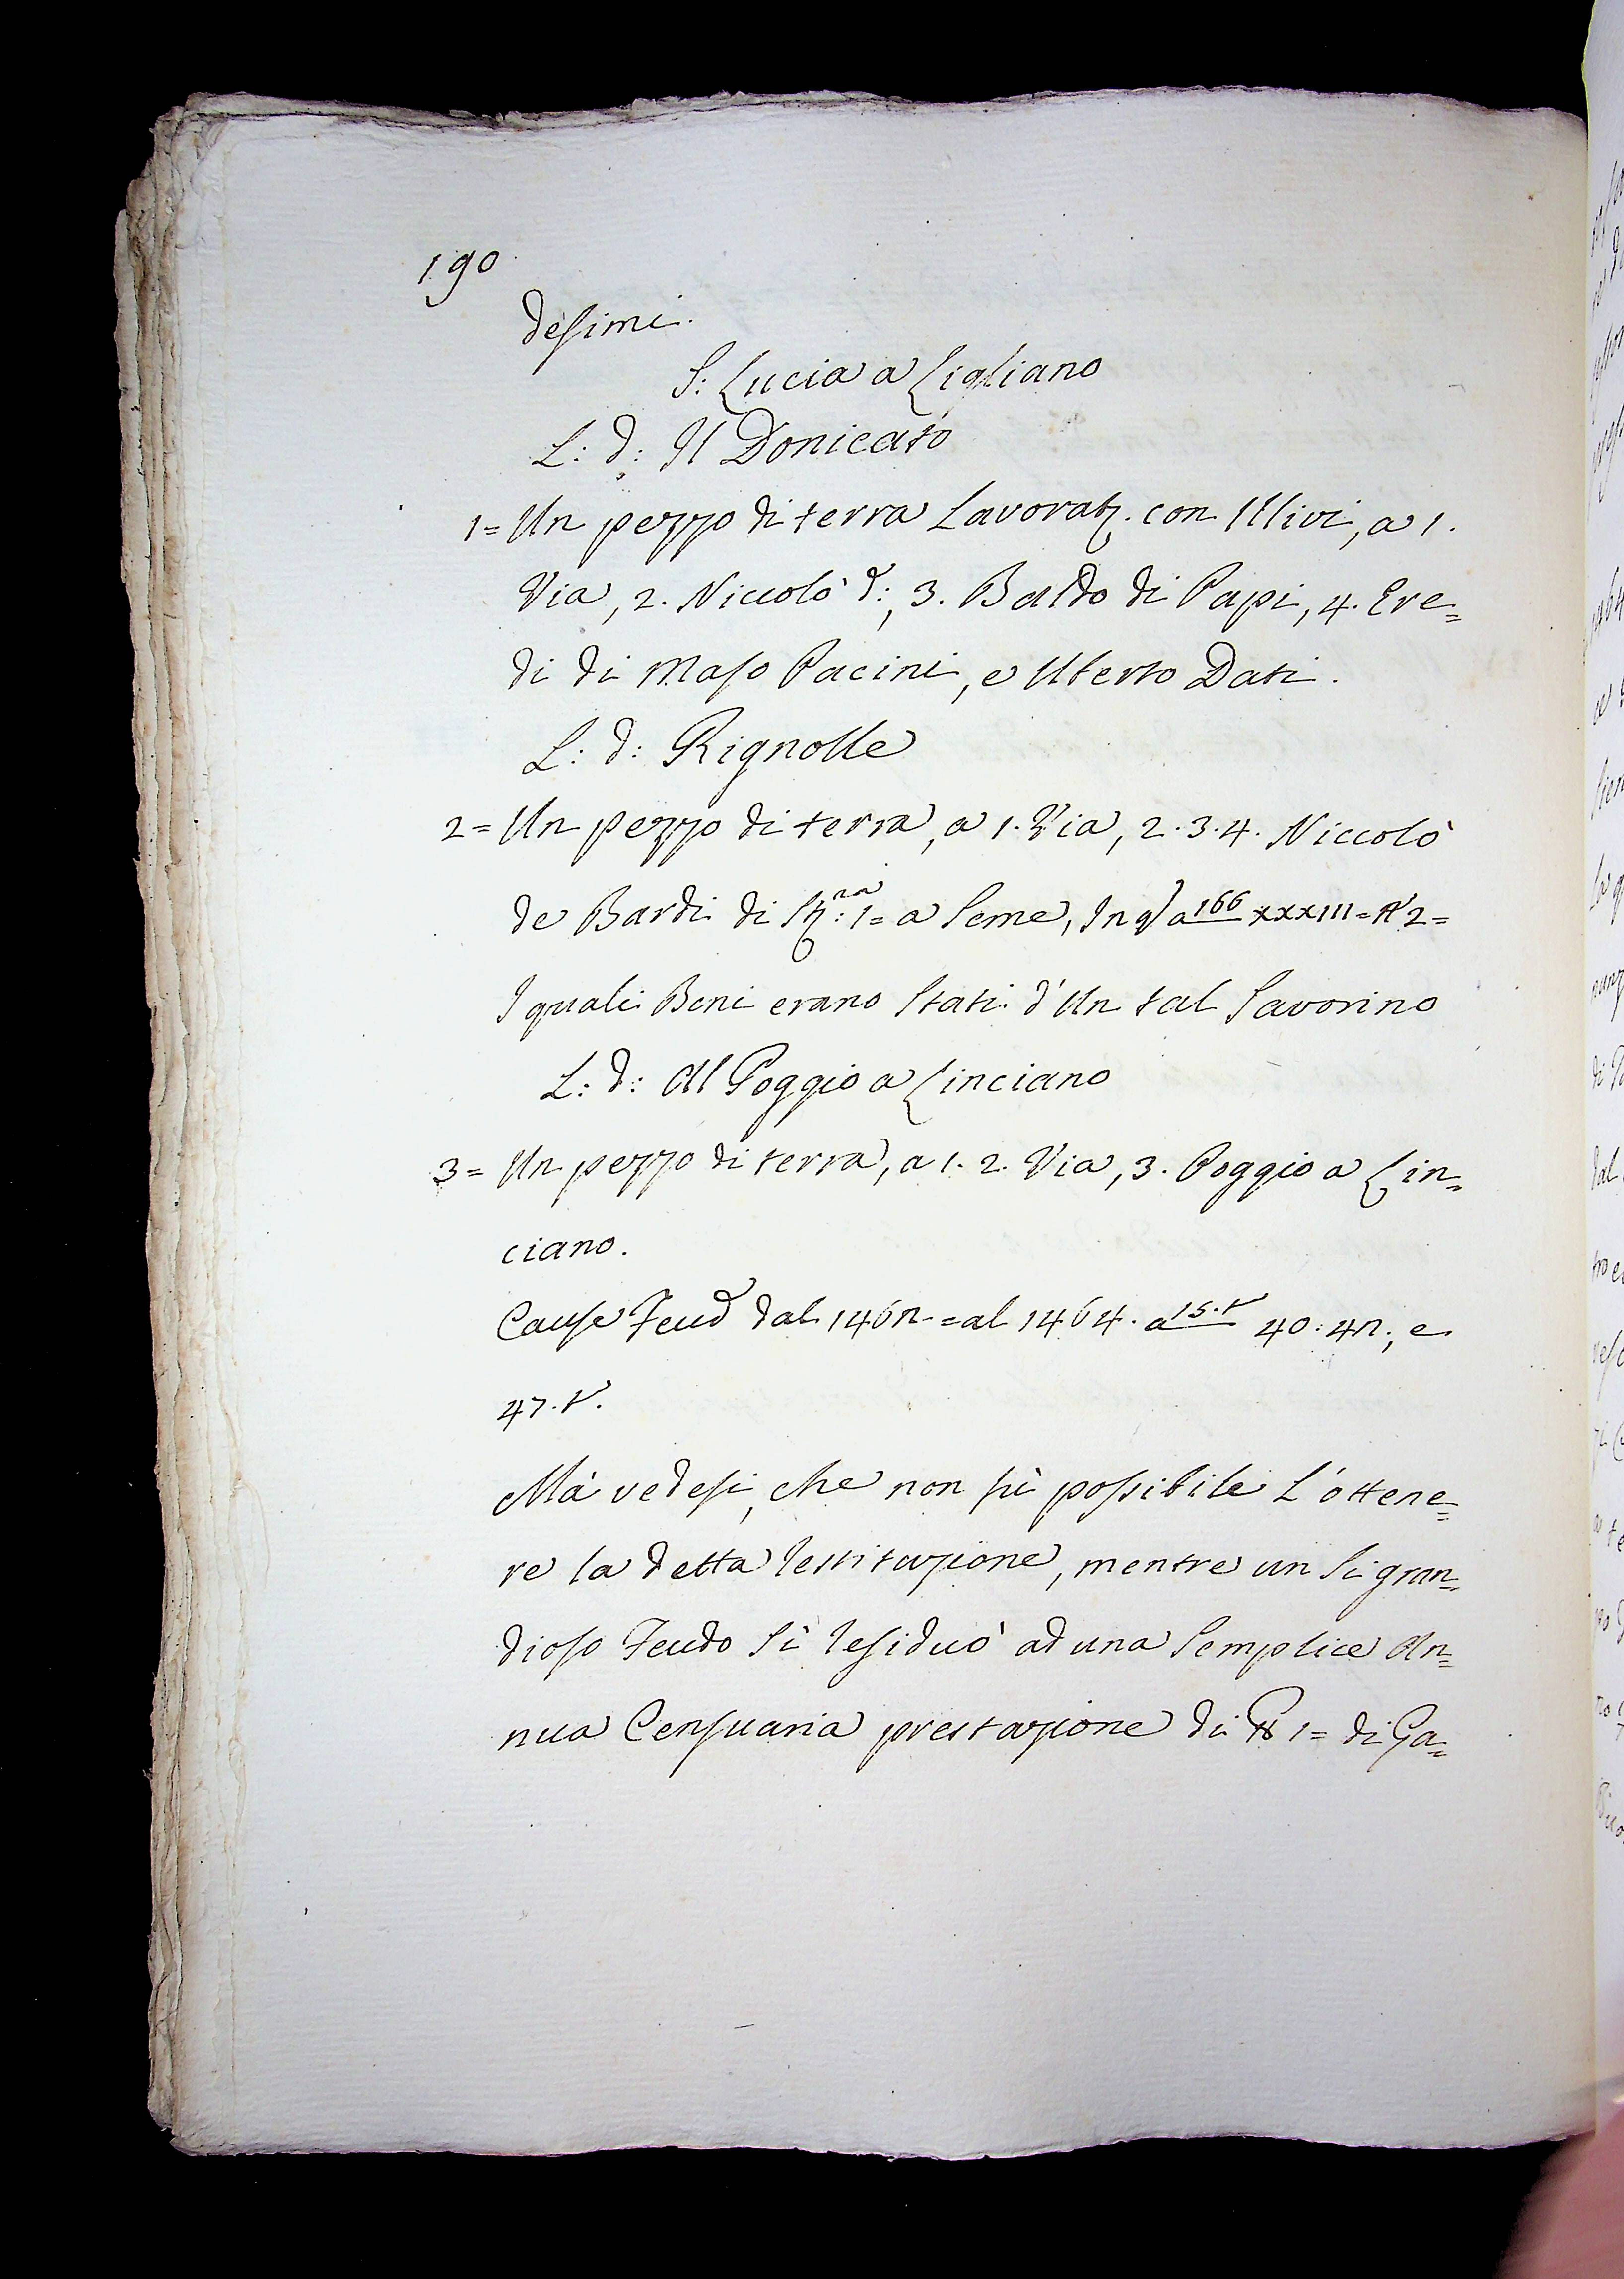 190
desimi.
S: Lucia a Ligliano
L: d: Il Donicato
1= Un pezzo di terra Lavorat. con Ulivi, a 1.
Via, 2. Niccolò d:, 3. Baldo di Papi, 4. Ere=
di di Maso Pacini, e Uberto Dati.
L: d: Rignolle
2= Un pezzo di terra, a 1. Via, 2. 3. 4. Niccolò
de Bardi di 1= a Seme, In a 166 XXXIII = 2=
I quali Beni erano Stati d'Un tal Savorino
L: d: Al Poggio a Linciano
3= Un pezzo di terra, a 1. 2. Via, 3. Poggio a Lin=
ciano.
Cause Feud dal 1462 = al 1464. a 15. t 40: 42:, e
47. t.
Mà vedesi, che non fù possibile L'ottene=
re la detta restituzione, mentre un Si gran=
dioso Feudo Si residuò ad una Semplice An=
nua Censuaria prestazione di 1= di Ga=